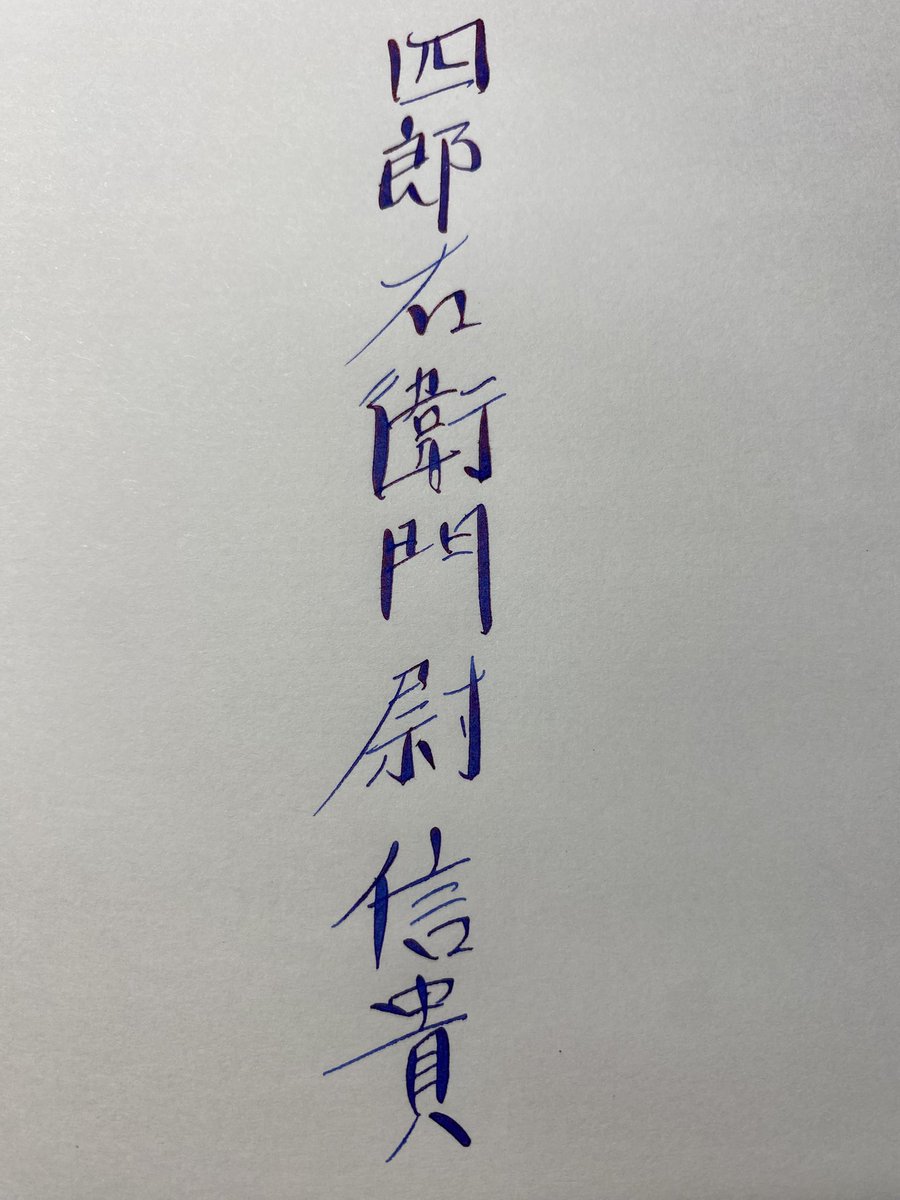 四郎右衛門尉信貴